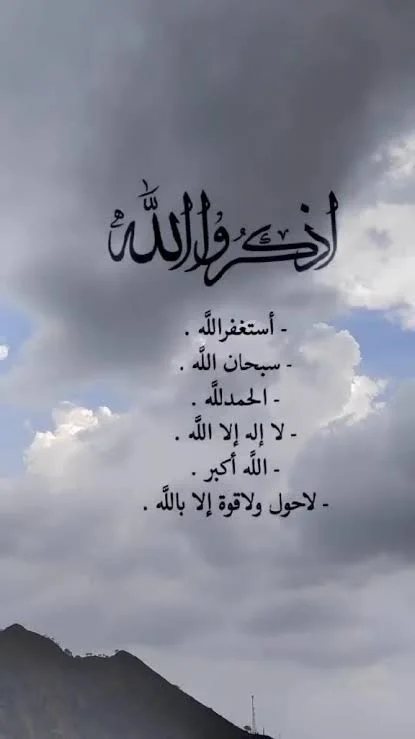 اذكروا الله
- أستغفرالله .
- سبحان الله .
- الحمدلله .
- لا إله إلا الله .
- الله أكبر .
- لاحول ولاقوة إلا بالله .